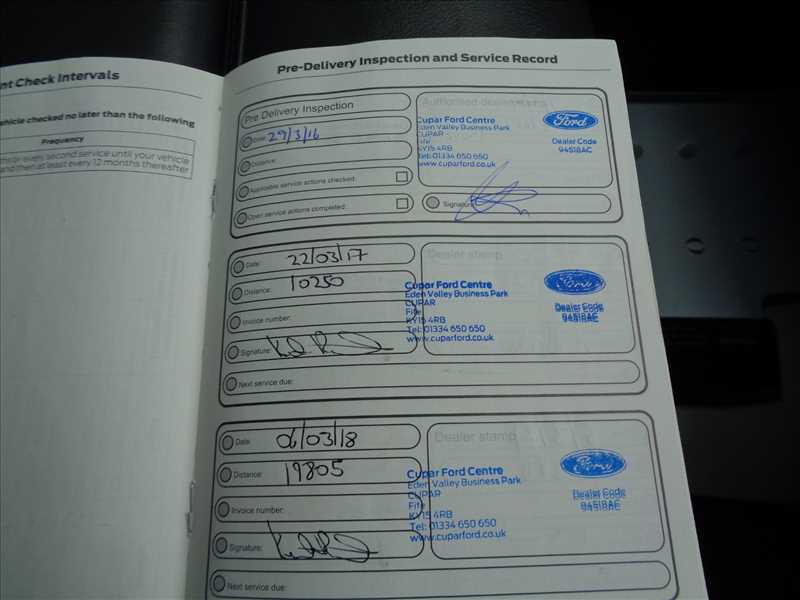 nt Check Intervals
ehicle checked no later than the following
Frequency
vehicle every second service until your vehicle
and then at least every 12 months thereafter
Pre-Delivery Inspection and Service Record
Pre Delivery Inspection
Date: 29/3/16
Distance:
Applicable service actions checked:
Open service actions completed:
Authorised dealer stamp
Cupar Ford Centre
Eden Valley Business Park
CUPAR
Fife
KY15 4RB
Tel: 01334 650 650
www.cuparford.co.uk
Ford
Dealer Code
94518AC
Signature
Date: 22/03/17
Distance: 10250
Invoice number:
Signature:
Next service due:
Dealer stamp
Cupar Ford Centre
Eden Valley Business Park
CUPAR
Fife
KY15 4RB
Tel: 01334 650 650
www.cuparford.co.uk
Ford
Dealer Code
94518AC
Date: 06/03/18
Distance: 19805
Invoice number:
Signature:
Next service due:
Dealer stamp
Cupar Ford Centre
Eden Valley Business Park
CUPAR
Fife
KY15 4RB
Tel: 01334 650 650
www.cuparford.co.uk
Ford
Dealer Code
94518AC